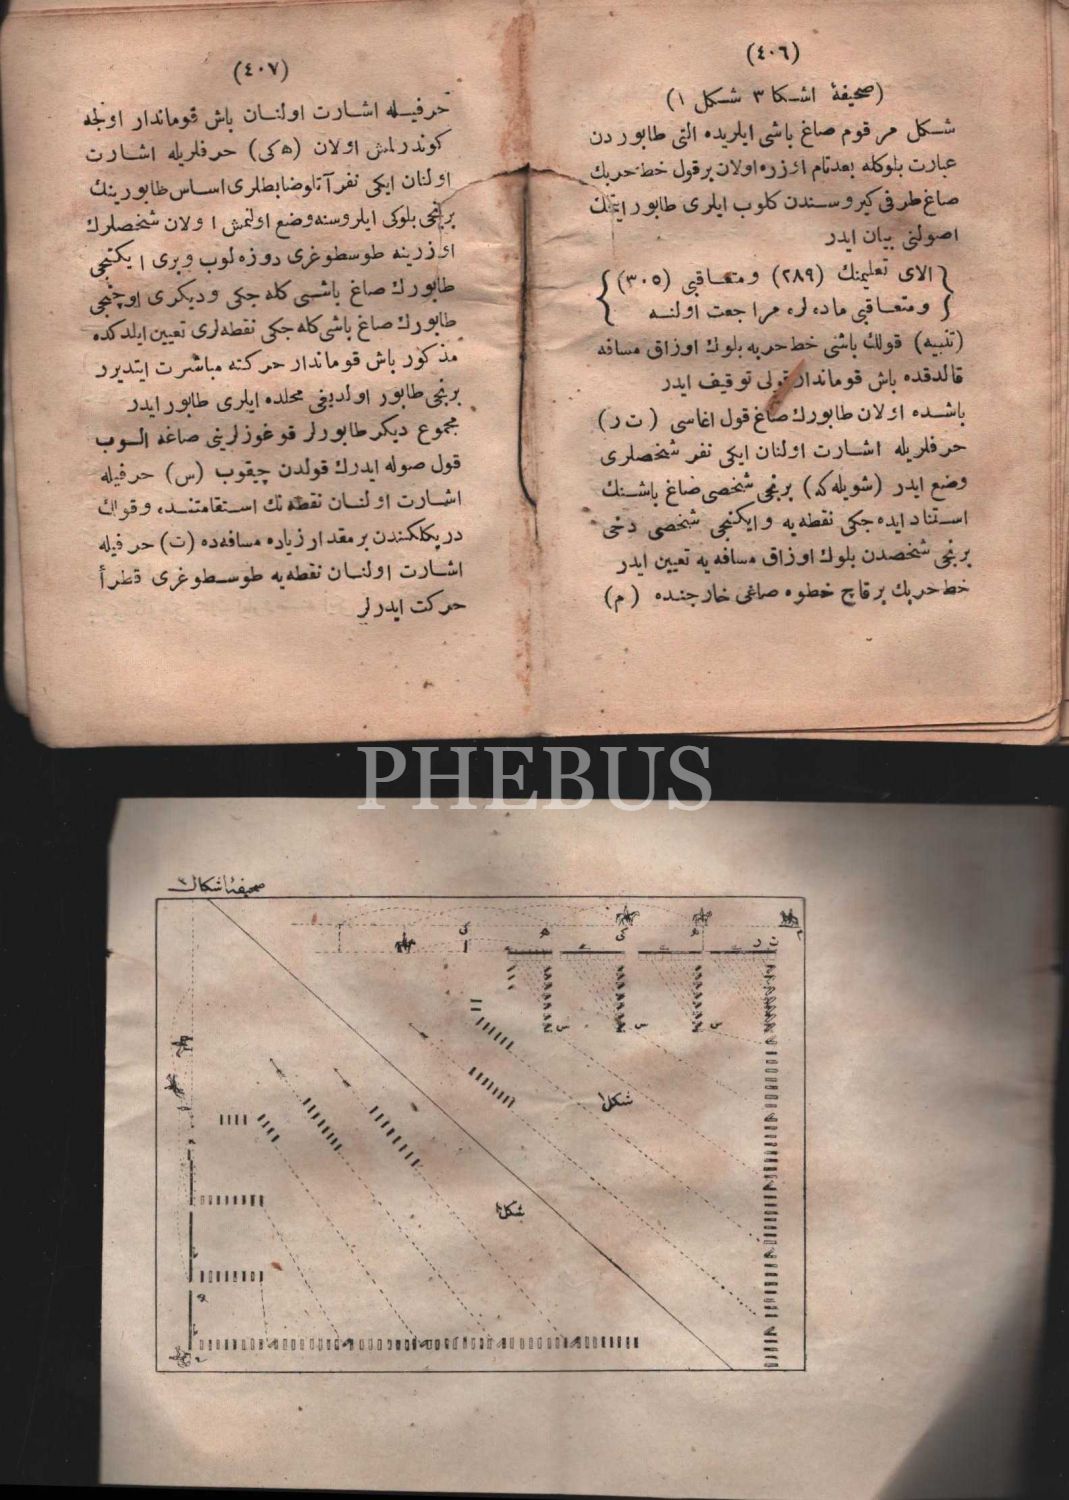 (٤٠٦)
(صحیفهٔ اشكا ٣ شكل ١)
شكل مرقوم صاغ باشی ایلریده التی طابوردن
عبارت بلوكله بعدتام اوزره اولان برقول خط حربك
صاغ طرفی كیروسندن كلوب ایلری طابور ایتمك
اصولنی بیان ایدر
{الای تعلیمنك (٢٨٩) ومتعاقبی (٣٠٥)
ومتعاقبی ماده لره مراجعت اولنه}
(تنبیه) قولك باشی خط حربه بلوك اوزاق مسافه
قالدقده باش قوماندار قولی توقیف ایدر
باشده اولان طابورك صاغ قول اغاسی (ت ر)
حرفلریله اشارت اولنان ایكی نفر شخصلری
وضع ایدر (شویله كه) برنجی شخصی صاغ باشنك
استناد ایده جكی نقطه یه وایكنجی شخصی دخی
برنجی شخصدن بلوك اوزاق مسافه یه تعیین ایدر
خط حربك برقاچ خطوه صاغی خارجنده (م)
(٤٠٧)
حرفیله اشارت اولنان باش قوماندار اولجه
كوندرلمش اولان (ه كی) حرفلریله اشارت
اولنان ایكی نفر آتلو ضابطلری اساس طابورینك
برنجی بلوكی ایلروسنه وضع اولنمش اولان شخصلرك
اوزرینه طوسطوغری دوزه لوب وبری ایكنجی
طابورك صاغ باشی كله جكی ودیكری اوچنجی
طابورك صاغ باشی كله جكی نقطه لری تعیین ایلدكده
مذكور باش قوماندار حركته مباشرت ایتدیرر
برنجی طابور اولدیغی محلده ایلری طابور ایدر
مجموع دیكر طابورلر قوغوزلرینی صاغه الوب
قول صوله ایدرك قولدن چیقوب (س) حرفیله
اشارت اولنان نقطه نك استقامتنده وقولك
دریكلكندن بر مقدار زیاده مسافه ده (ت) حرفیله
اشارت اولنان نقطه یه طوسطوغری قطرأ
حركت ایدرلر
PHEBUS
صحیفهٔ اشكال ٣
م
ت ر
ه
كی
ه
كی
س
س
س
شكل ١
شكل ٢